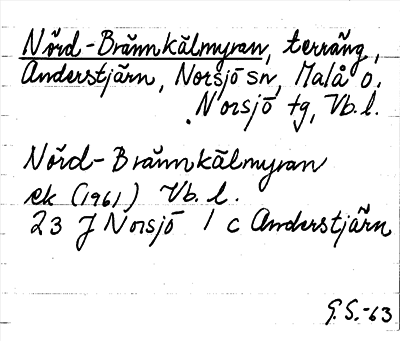 Nörd-Brännkälmyran, terräng,
Anderstjärn, Norsjö sn, Malå o.
Norsjö tg, Vb. l.
Nörd-Brännkälmyran
ek (1961) Vb. l.
23 J Norsjö 1 c Anderstjärn
G.S.-63